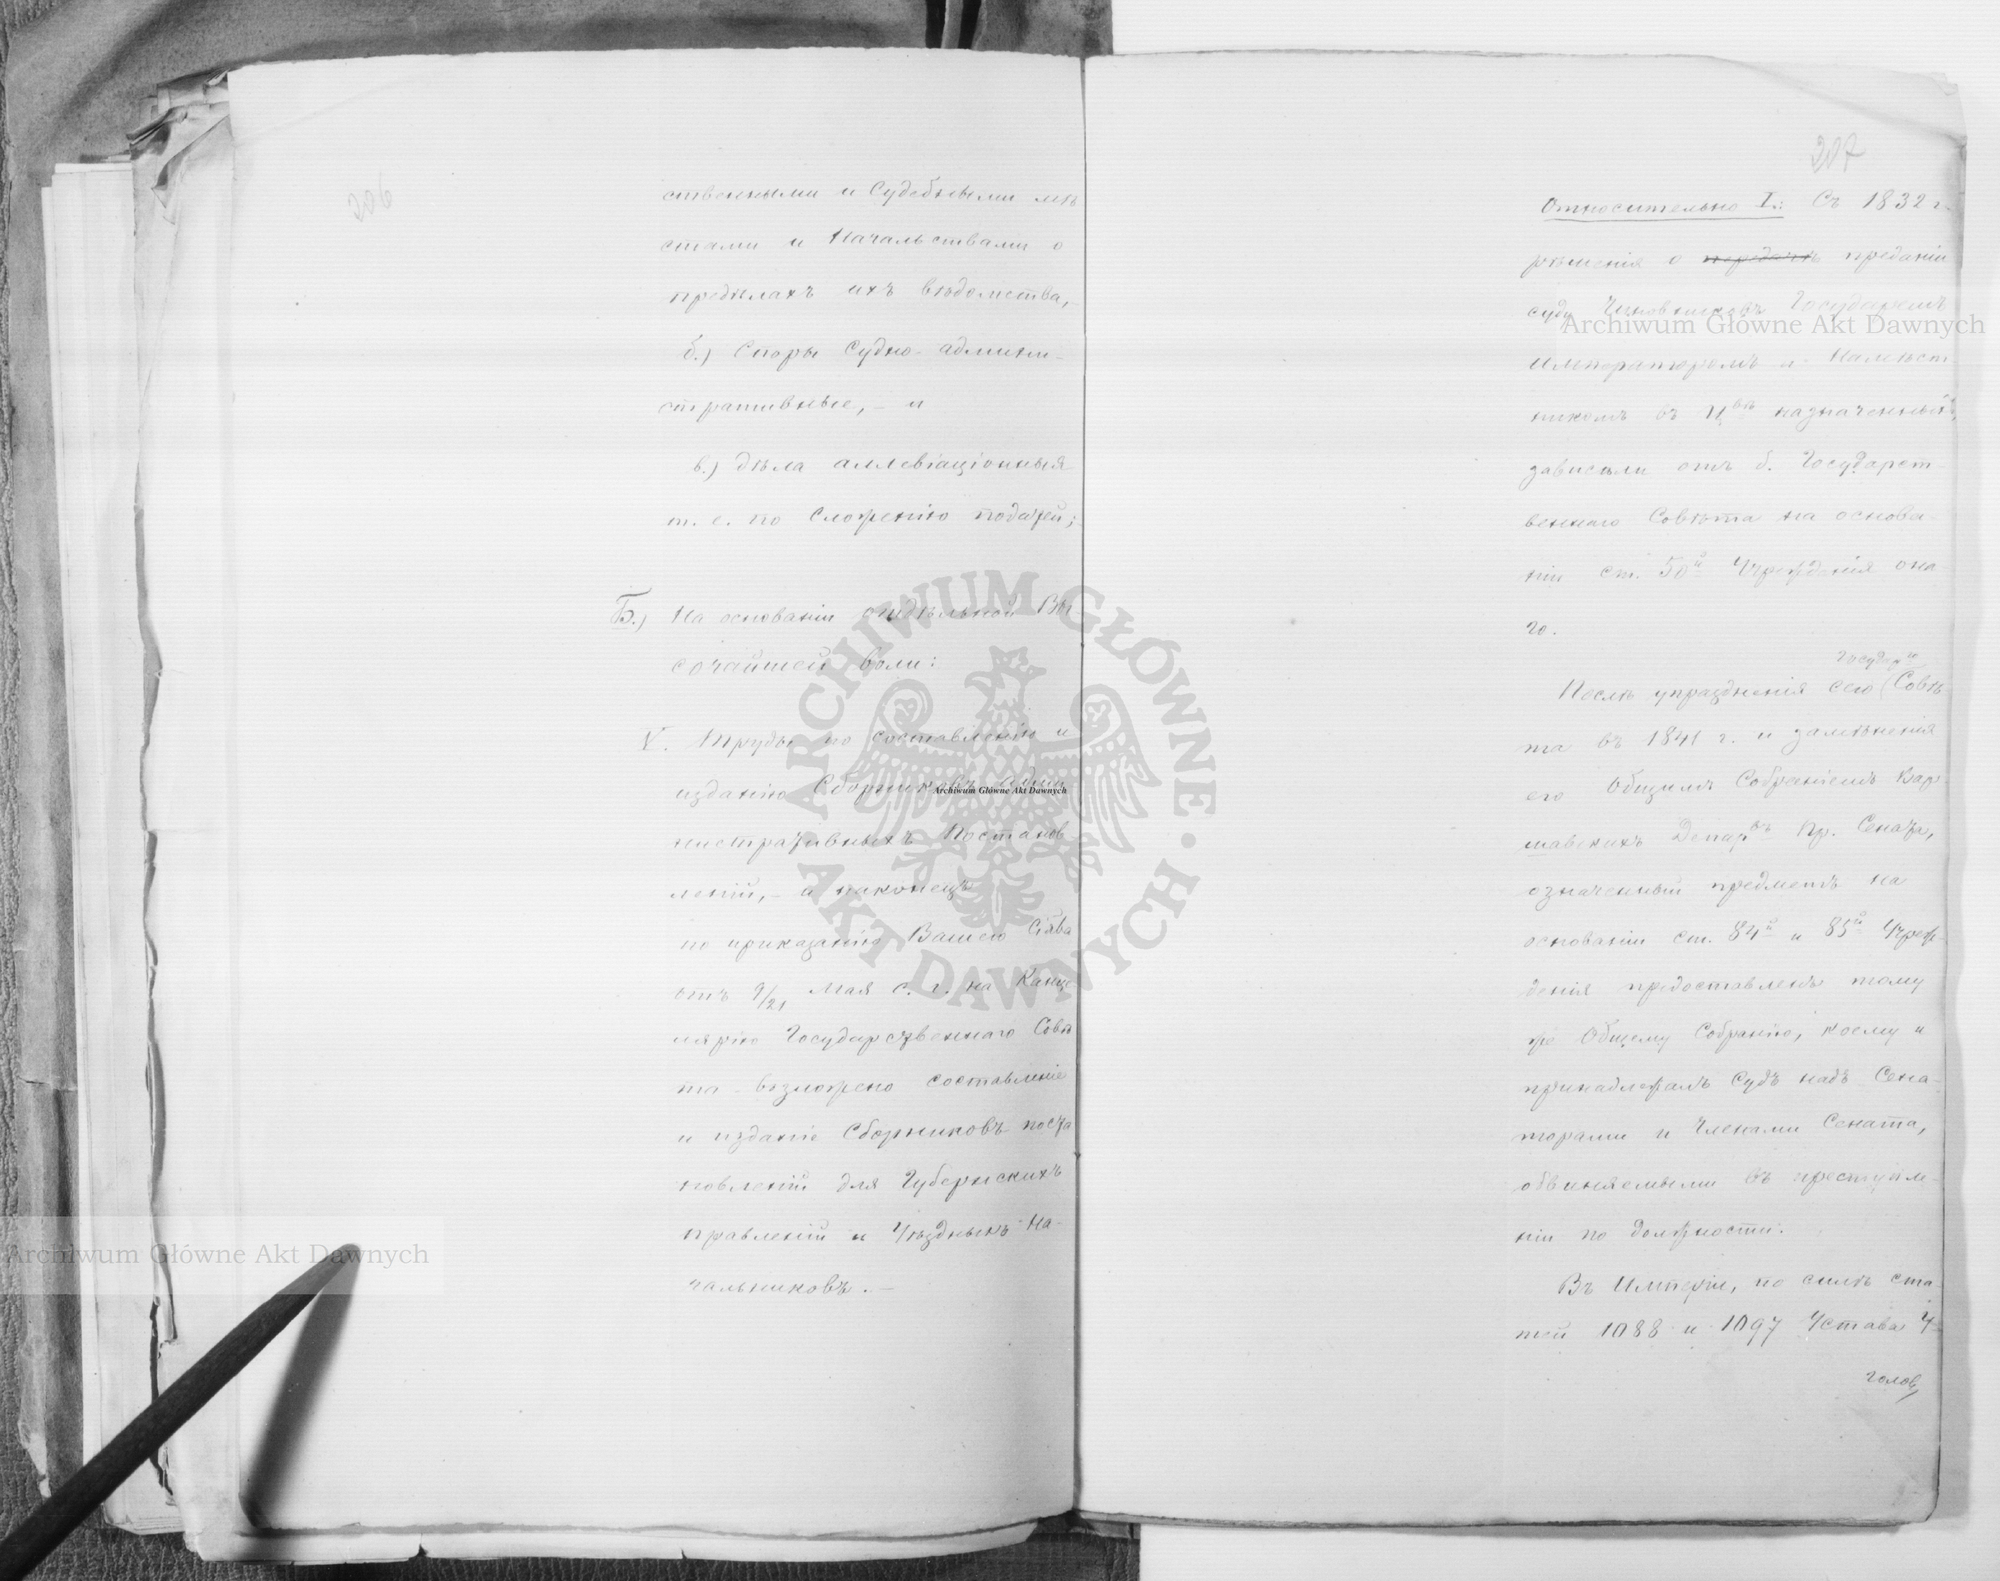 206
ственными и Судебными мѣ
стами и Начальствами о
предѣлахъ ихъ вѣдомства,
б.) Споры Судно-админи-
стративные, - и
в.) дѣла аллевіаціонныя
т. е. по Сложенію податей;
Б.) На основаніи отдѣльной Вы
сочайшей воли:
V. Труды по составленію и
изданію Сборниковъ Адми
нистративныхъ Постанов
леній, - а наконецъ
по приказанію Вашего Сіява
отъ 9/21 Мая с. г. на Канце
лярію Государственнаго Совѣ
та возложено составленіе
и изданіе Сборниковъ поста
новленій для Губернскихъ
правленій и Уѣздныхъ На-
чальниковъ. -
207
Относительно I.: Съ 1832 г.
рѣшенія о передачѣ преданіи
суду Чиновниковъ Государемъ
Императоромъ и Намѣст
никомъ въ Ц вѣ назначенный,
зависѣли отъ б. Государст
веннаго Совѣта на основа-
ніи ст. 50й Учрежденія она-
го.
Государ и
Послѣ упраздненія сего Совѣ
та въ 1841 г. и замѣненія
его Общимъ Собраніемъ Вар
шавскихъ Депар въ Пр. Сената,
означенный предметъ на
основаніи ст. 84й и 85й Учреж-
денія предоставленъ тому
же Общему Собранію, коему и
принадлежалъ Судъ надъ Сена-
торами и Членами Сената,
обвиняемыми въ преступле-
ніи по должности.
Въ Имперіи, по силѣ ста
тей 1088 и 1097 Устава У
голов,
Archiwum Główne Akt Dawnych
Archiwum Główne Akt Dawnych
Archiwum Główne Akt Dawnych
ARCHIWUM GŁÓWNE AKT DAWNYCH